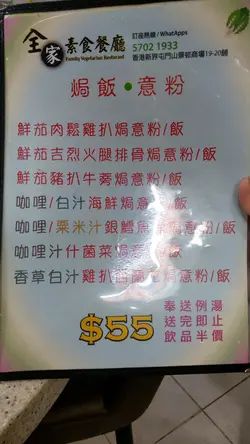 全家 素食餐廳
Family Vegetarian Restaurant
訂座熱線/WhatApps
5702 1933
香港新界屯門山景邨商場19-20舖
焗飯•意粉
鮮茄肉鬆雞扒焗意粉/飯
鮮茄吉烈火腿排骨焗意粉/飯
鮮茄豬扒牛蒡焗意粉/飯
咖喱/白汁海鮮焗意粉/飯
咖喱/粟米汁銀鱈魚焗意粉/飯
咖喱汁什菌菜焗意粉/飯
香草白汁雞扒西蘭花焗意粉/飯
$55
奉送例湯
送完即止
飲品半價